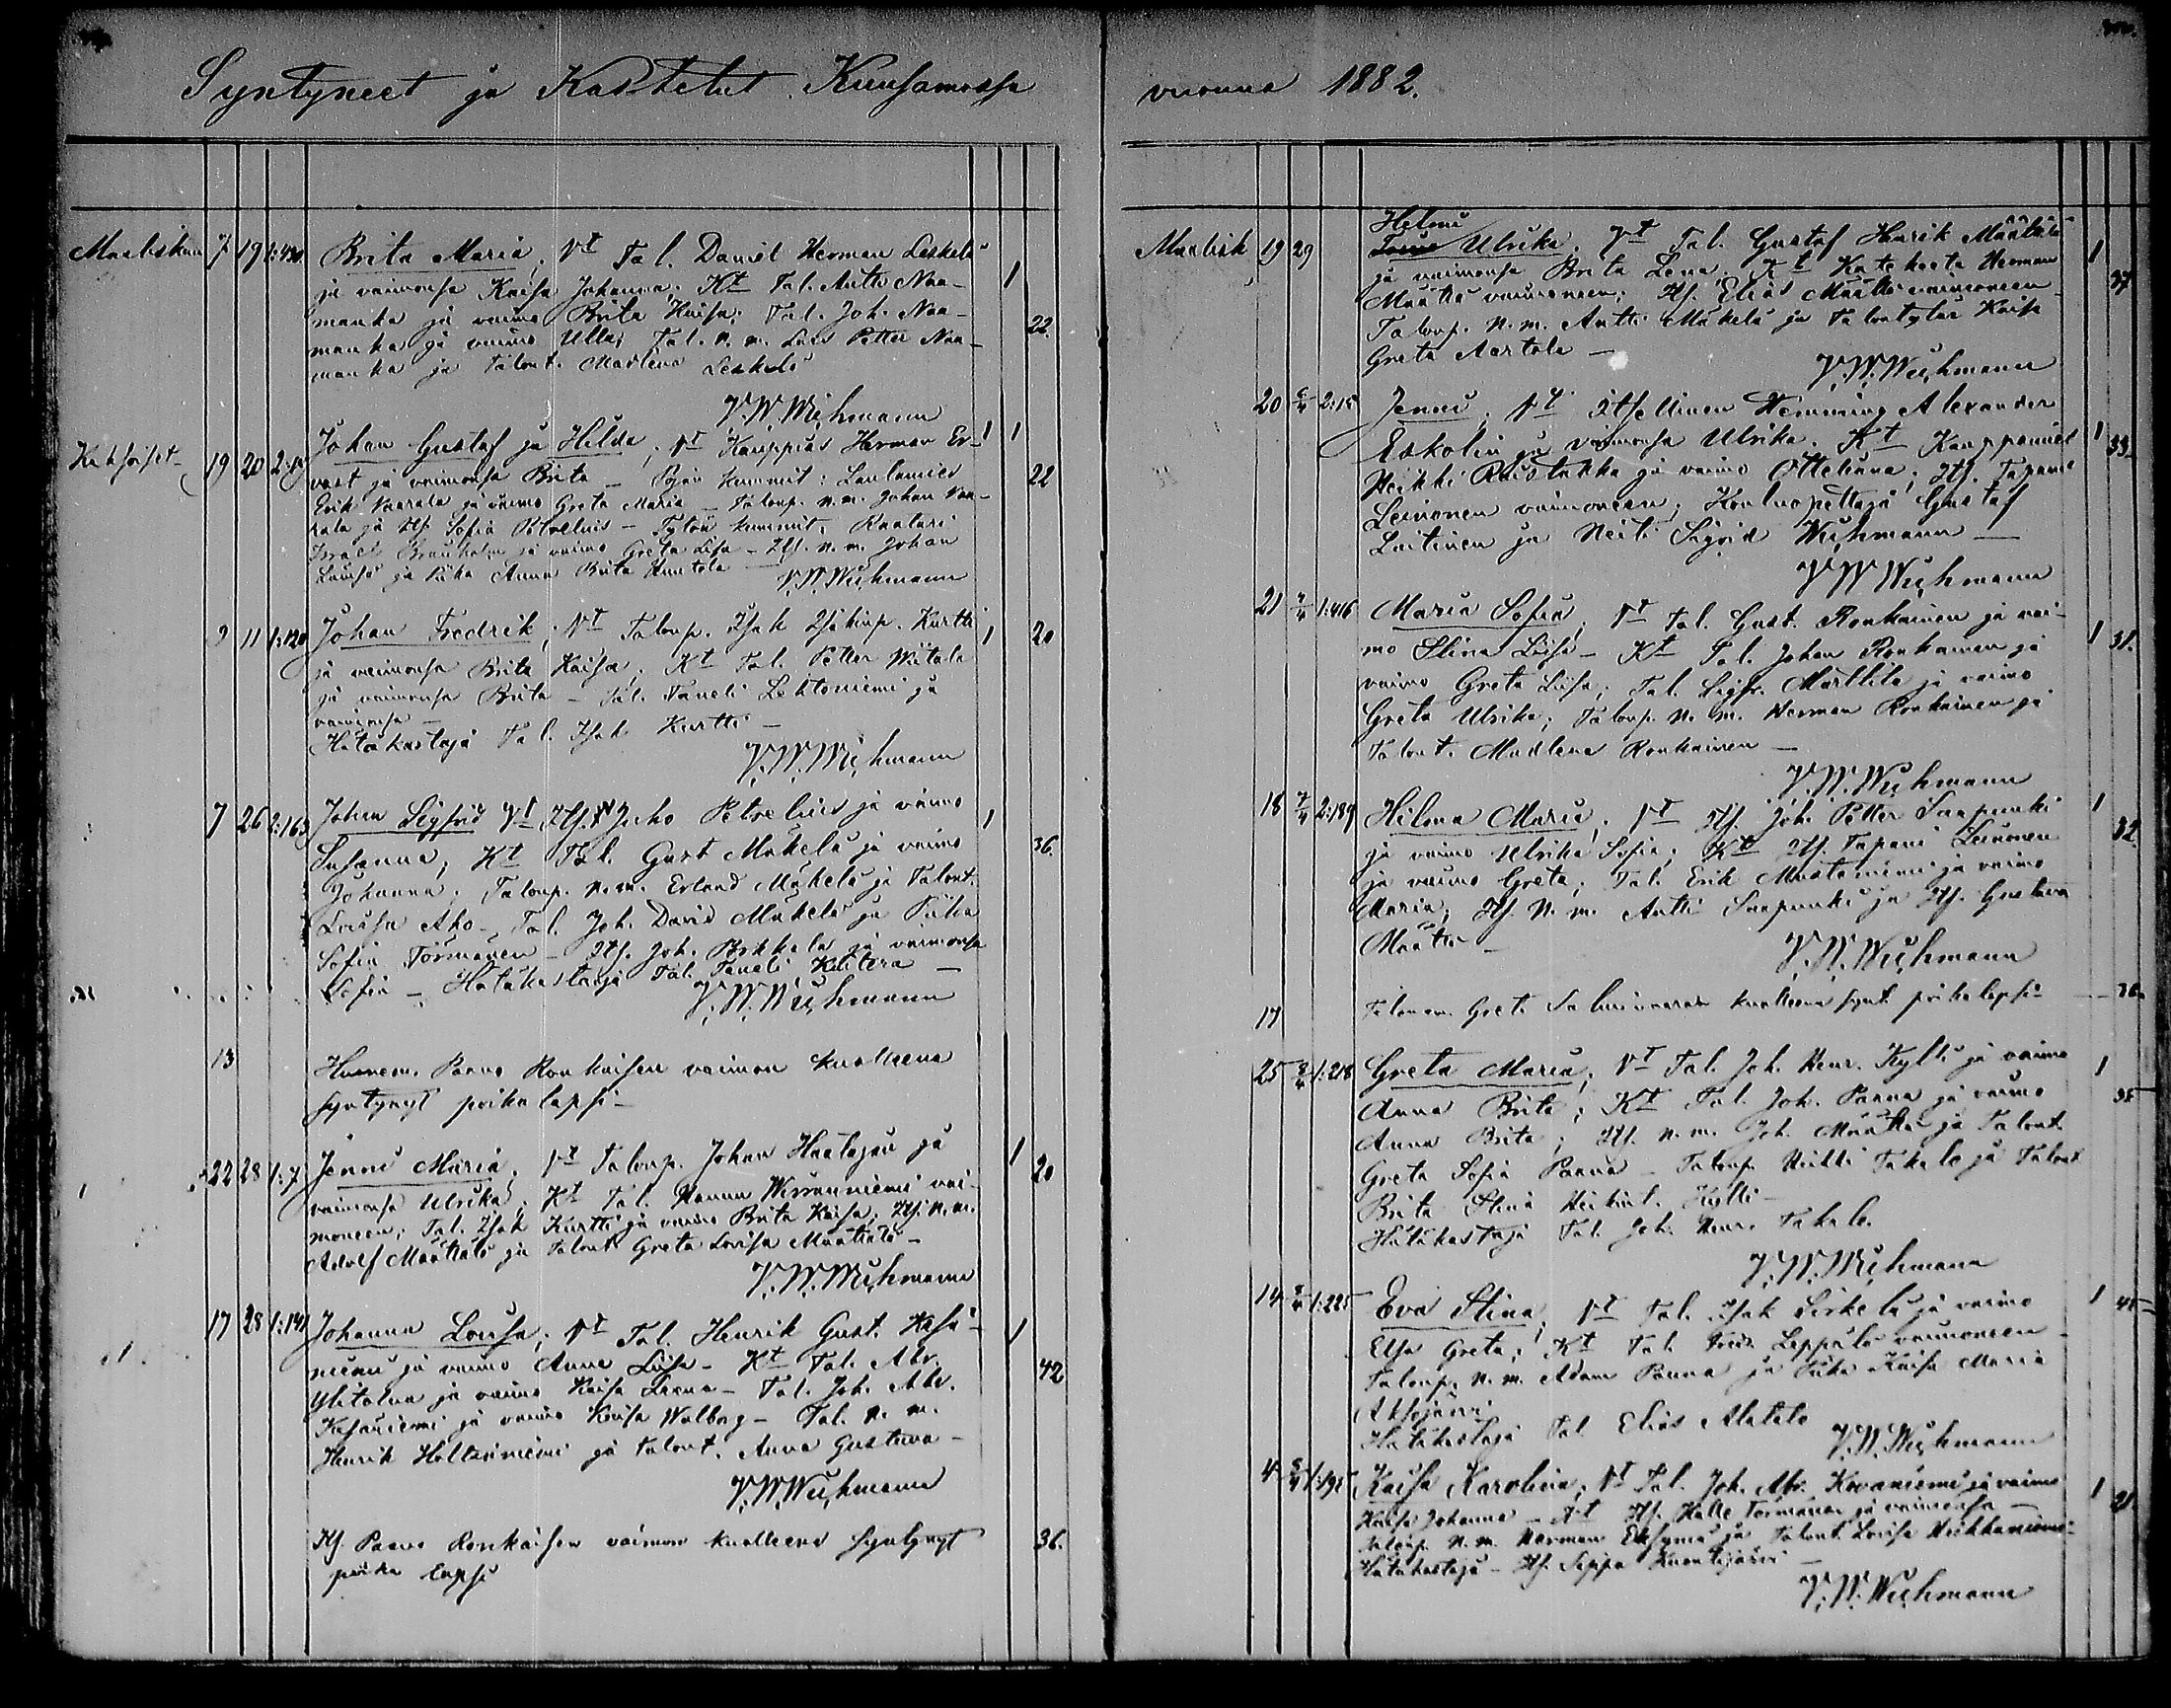 Syntyneet ja Kastetut Kuusamossa
Maaliskuu 7 19 1:430 Brita Maria; Vt Tal. Daniel Herman Leskelä
ja vaimonsa Kaisa Johanna; Kt Tal. Antti Naa- 1
manka ja vaimo Brita Kaisa; Tal. Joh. Naa-
manka ja vaimo Ulla; Tal. n. m. Lars Petter Naa- 22.
manka ja Talont. Madlena Leskelä
V. W. Wichmann
Kaksoiset 19 20 Johan Gustaf ja Hilda; Vt Kauppias Herman Er- 1 1
vast ja vaimonsa Brita _ Pojan kummit: Lautamies 22
Erik Vaarala ja vaimo Greta Maria _ Taloup. n. m. Johan Vaa-
rala ja Its. Sofia Petrelius _ Tytön kummit. Raatari
Israel ja vaimo Greta Lisa _ Its. n. m. Johan
ja Piika Anna Brita
V. W. Wichmann
9 11 1:120 Johan Fredrik; Vt Taloup. Isak Isakinp. Kurtti 1 20
ja vaimonsa Brita Kaisa; Kt Tal. Petter Witala
ja vaimonsa Brita _ Tal. Taneli Lehtoniemi ja
vaimonsa _
Hätäkastaja Tal. Isak Kurtti _
V. W. Wichmann
7 26 2:163 Johan Sigfrid Vt Its. Juho Petrelius ja vaimo 1
Susanna; Kt Tal. Gust Mäkelä ja vaimo 36.
Johanna; Taloup. n. m. Erland Mäkelä ja Talont.
Lovisa Aho _ Tal. Joh. David Mäkelä ja Piika
Sofia Törmänen _ Its. Joh. Pekkala ja vaimonsa
Sofia _ Hätäkastaja Tal. Taneli
V. W. Wichmann
13 Paavo Ronkaisen vaimon kuolleena
syntynyt poikalapsi _
22 28 1:7 Jenni Maria; Vt Taloup. Johan Haatajan ja 1 20
vaimonsa Ulrika; Kt Tal. Wirranniemi vai-
moneen; Tal. Isak Kurtti ja vaimo Brita Kaisa; Its. n. m.
Adolf Määttälä ja Talont Greta Lovisa Määttälä _
V. W. Wichmann
17 28 1:141 Johanna Lovisa; Vt Tal. Henrik Gust. Kesä- 1
niemi ja vaimo Anna Liisa _ Kt Tal. Abr. 42
Ylitalva ja vaimo Kaisa Leena _ Tal. Joh. Abr.
Kesäniemi ja vaimo Kaisa Walborg _ Tal. n. m.
Henrik ja Talont. Anna Gustava _
V. W. Wichmann
Its. Paavo Ronkaisen vaimon kuolleena syntynyt 36.
poika lapsi
vuonna 1882.
Maalisk 19 29 Helmi
Ulrika. Vt Tal. Gustaf Henrik Määttälä 1
ja vaimonsa Brita Lena. Kt Katekeeta Herman
Määttä vaimoneen; Its. Elias Määttä vaimoneen 37
Taloup. n. m. Antti Mäkelä ja Talontytär Kaisa
Greta Aartola _
V. W. Wichmann
20 6/4 2:15 Jenni; Vt Itsellinen Hemming Alexander
Eskolin ja vaimonsa Ulrika. Kt Kauppamies 1 33.
Heikki Rustakka ja vaimo Otteliana; Its. Tapani
Leinonen vaimoneen; Koulunopettaja Gustaf
Laitinen ja Neiti Sigrid Wichmann _
V W Wichmann
21 7/4 1:416 Maria Sofia; Vt Tal. Gust. Ronkainen ja vai-
mo Stina Liisa _ Kt Tal. Johan Ronkainen ja 1 31.
vaimo Greta Liisa; Tal. Sigfr. Marttila ja vaimo
Greta Ulrika; Taloup. n. m. Herman Ronkainen ja
Talont. Madlena Ronkainen _
V. W. Wichmann
18 7/4 2:189 Hilma Maria; Vt Its. Joh. Petter Saapunki 1
ja vaimo Ulrika Sofia; Kt Its. Tapani Leinonen 32.
ja vaimo Greta; Tal. Erik Mustaniemi ja vaimo
Maria; Its. n. m. Antti Saapunki ja Its. Gustava
Määttä _
V. W. Wichmann
17 Greta kuolleena synt. poikalapsi _
25 8/4 1:218 Greta Maria; Vt Tal. Joh. Henr. Kylli ja vaimo 1
Anna Brita; Kt Tal. Joh. Paana ja vaimo 35
Anna Brita; Its. n. m. Joh. Määttä ja Talont.
Greta Sofia Paana _ Taloup. Heikki Takalo ja Talont
Brita Stina Heikint. Kylli _
Hätäkastaja Tal. Joh. Henr. Takalo.
V. W. Wichmann
14 8/4 1:225 Eva Stina; Vt Tal. Isak Sirkelä ja vaimo 1
Elsa Greta; Kt Tal. Fredr. Leppälä vaimoneen _
Taloup. n. m. Adam Paana ja Piika Kaisa Maria
Hätäkastaja Tal Elias Alatalo
V. W. Wichmann
4 8/4 Kaisa Karolina; Vt Tal. Joh. Abr. Kovaniemi ja vaimo 1
Kaisa Johanna _ Kt Its. Kalle Törmänen ja vaimonsa _
Taloup. n. m. Herman ja Talont. Lovisa Heikkaniemi
Hätäkastaja _ Its. Seppa
V. W. Wichmann